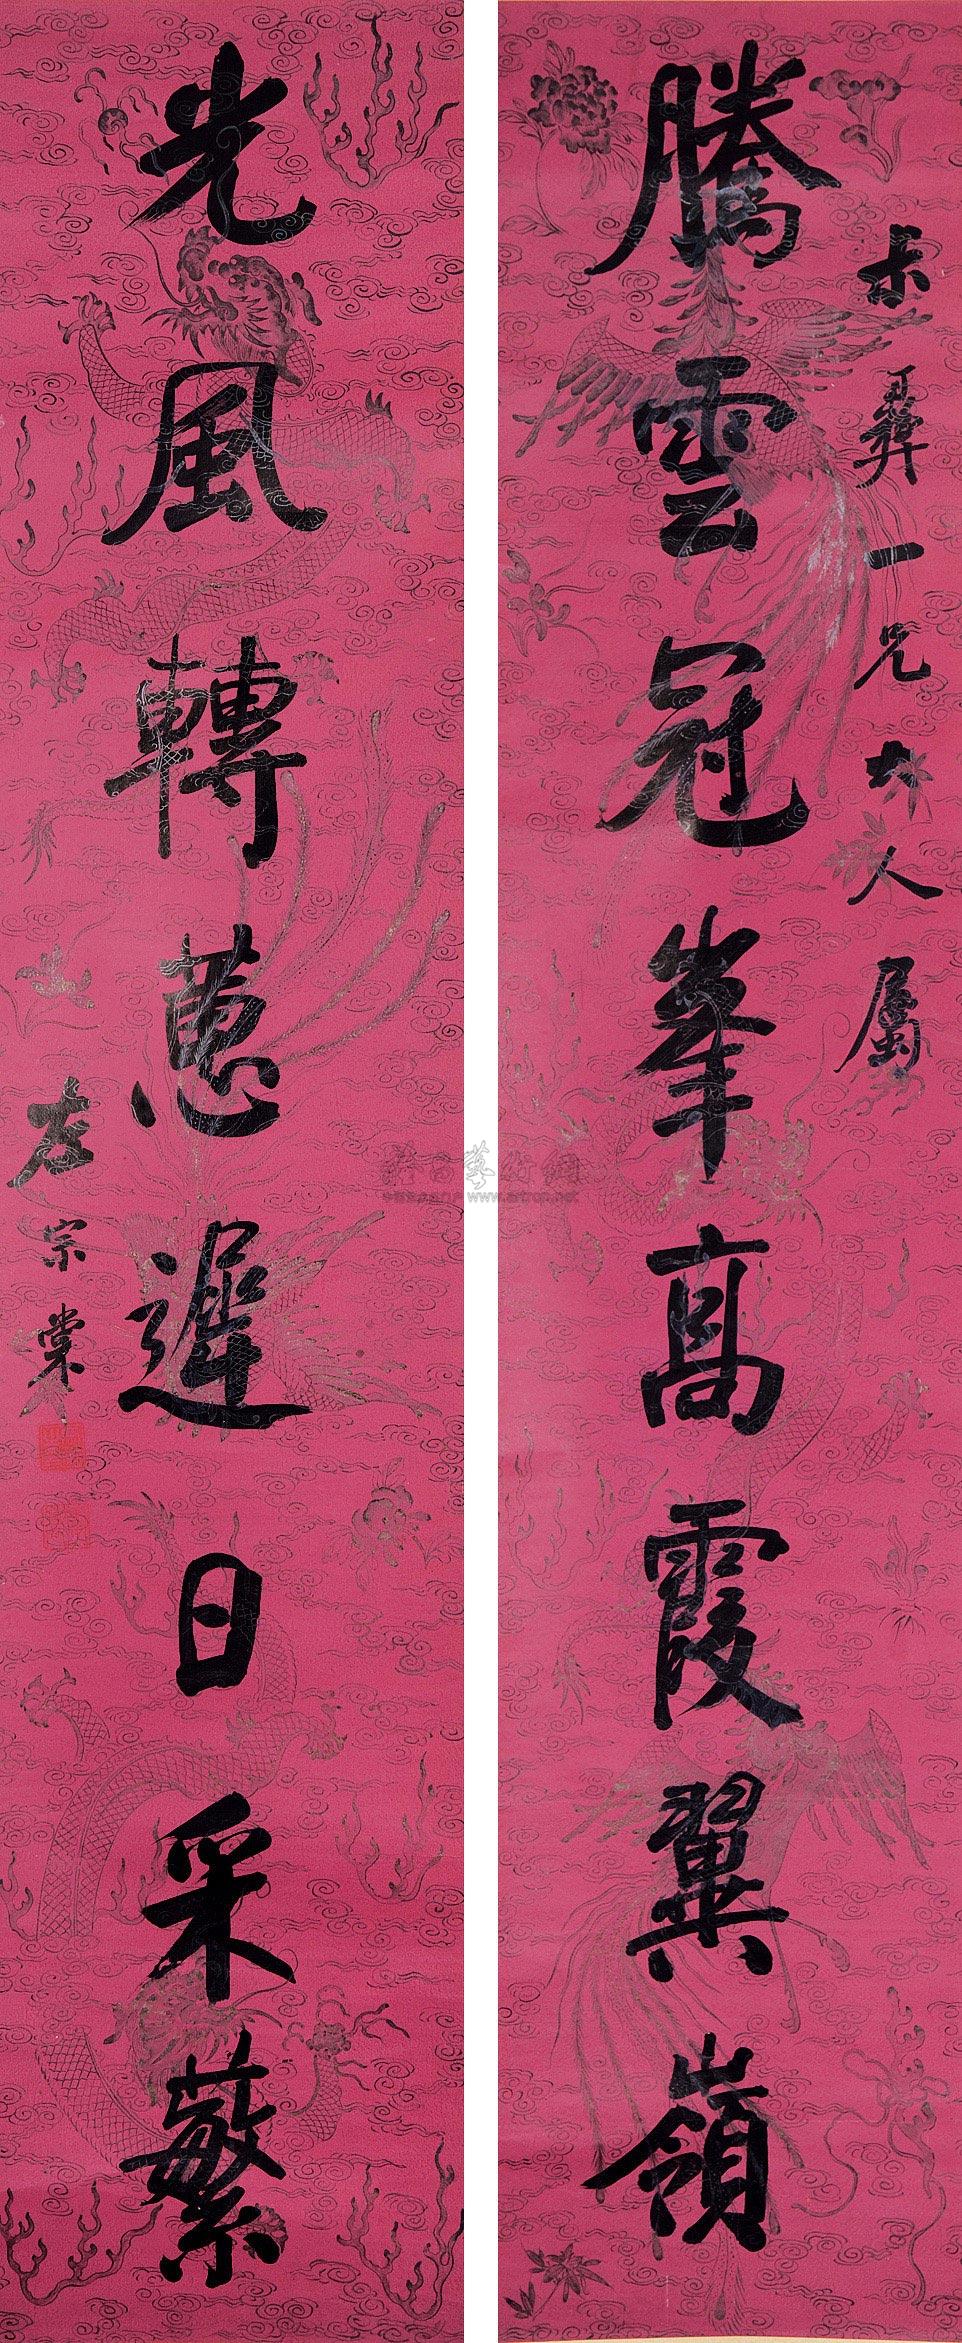 騰雲冠峯高霞翼嶺
彝一兄大人屬
光風轉蕙遲日采蘩
左宗棠
雅昌藝術網
www.artron.net